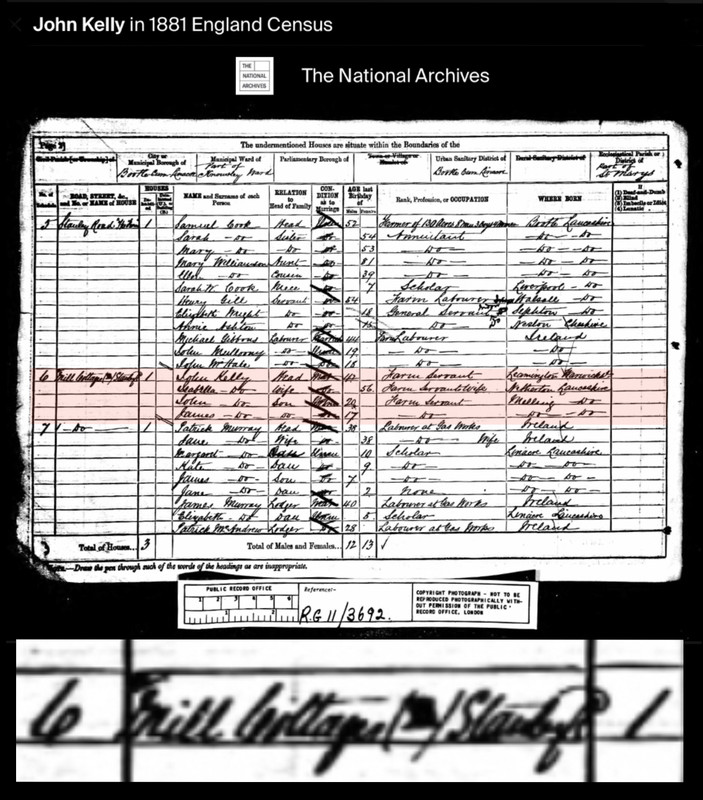 John Kelly in 1881 England Census
THE
NATIONAL
ARCHIVES
The National Archives
The undermentioned Houses are situate within the Boundaries of the
City or
Municipal Borough of
Municipal Ward of
Parliamentary Borough of
Urban Sanitary District of
Ecclesiastical Parish or
District of
Bootle cum Linacre
Part of
Knowsley Ward
Bootle cum Linacre
Part of
St Marys
ROAD, STREET, &c., and No. or NAME of HOUSE
HOUSES
NAME and Surname of each Person
RELATION to Head of Family
CONDITION as to Marriage
AGE last Birthday of
Rank, Profession, or OCCUPATION
WHERE BORN
(1) Deaf-and-Dumb
(2) Blind
(3) Imbecile or Idiot
(4) Lunatic
5 Stanley Road 1 Samuel Cook Head 52 Farmer of 130 Acres Bootle Lancashire
Sarah Do Sister 54 Annuitant Do Do
Mary Do Do 53 Do Do
Mary Williamson Aunt 81 Do Do
Do Cousin 39 Do Do
Sarah W. Cook Niece 7 Scholar Liverpool Do
Henry Gill Servant 54 Farm Labourer Walsall Do
Elizabeth Do 18 General Servant Sephton Do
Annie Ashton Do 15 Do Neston Cheshire
Michael Gibbons Labourer 44 Farm Labourer Ireland
John Do 19 Do Do
John McHale Do 18 Do Do
6 Mill Cottages Stanley R 1 John Kelly Head 42 Farm Servant Leamington Warwick
Isabella Do Wife 56 Farm Servant Wife Netherton Lancashire
John Do Son 20 Farm Servant Melling Do
James Do Do 17 Do Do Do
7 Do 1 Patrick Murray Head 38 Labourer at Gas Works Ireland
Jane Do Wife 38 Do Wife Ireland
Margaret Do 10 Scholar Linacre Lancashire
Kate Do Dau 9 Do Do Do
James Do Son 7 Do Do Do
Jane Do Dau 2 None Do Do
James Murray Lodger 40 Labourer at Gas Works Ireland
Elizabeth Do Dau 5 Scholar Linacre Lancashire
Patrick McAndrew Lodger 28 Labourer at Gas Works Ireland
Total of Houses... 3 Total of Males and Females... 12 13
Note.—Draw the pen through such of the words of the headings as are inappropriate.
PUBLIC RECORD OFFICE
1 2 3 4 5 6
1 2
Reference:-
RG 11/3692.
COPYRIGHT PHOTOGRAPH - NOT TO BE
REPRODUCED PHOTOGRAPHICALLY WITH-
OUT PERMISSION OF THE PUBLIC
RECORD OFFICE, LONDON
6 Mill Cottages Stanley R 1